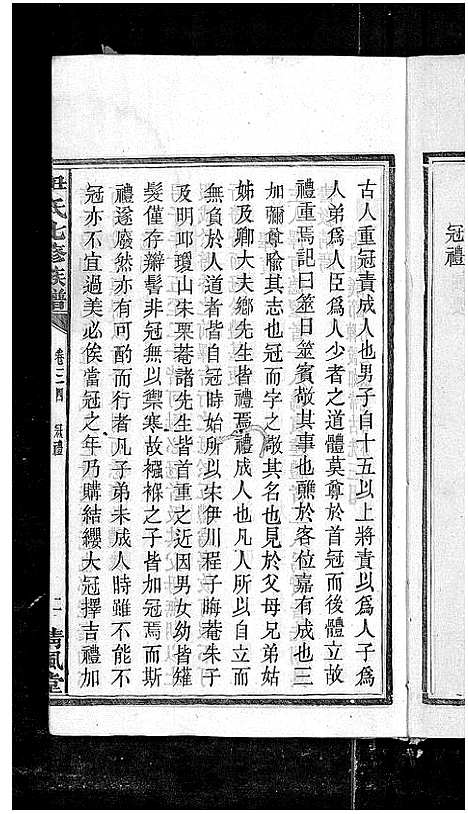 冠禮
古人重冠責成人也男子自十五以上將責以為人子為
人弟為人臣為人少者之道體莫尊於首冠而後體立故
禮重焉記曰筮日筮賓敬其事也醮於客位嘉有成也三
加彌尊喻其志也冠而字之敬其名也見於父母兄弟姑
姊及卿大夫鄉先生皆禮焉禮成人也凡人所以自立而
無負於人道者皆自冠時始所以宋伊川程子晦菴朱子
及明邱瓊山朱栗菴諸先生皆首重之近因男女幼皆薙
髮僅存辮髻非冠無以禦寒故襁褓之子皆加冠焉而斯
禮遂廢然亦有可酌而行者凡子弟未成人時雖不能不
冠亦不宜過美必俟當冠之年乃購結纓大冠擇吉禮加
氏七修族譜
卷三之四
冠禮
二
清風堂